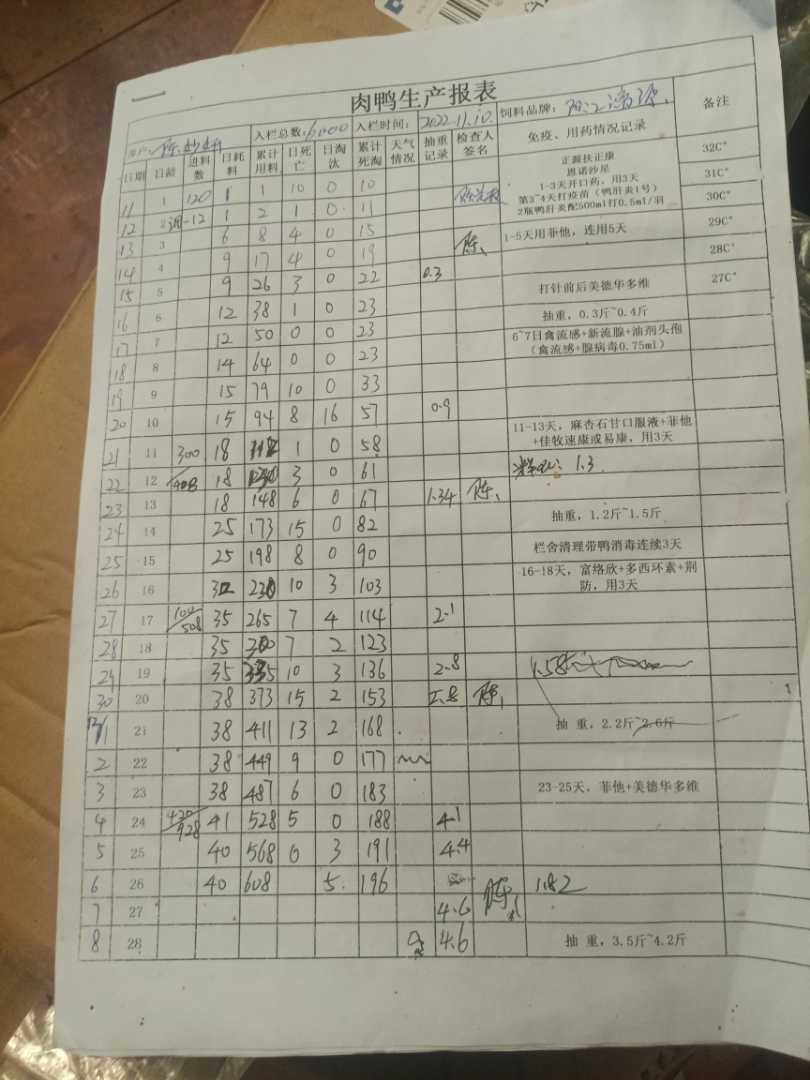 肉鸭生产报表
入栏总数:6000 入栏时间: 2022.11.10. 饲料品牌: 备注
日期 日龄 进料数 日耗料 累计用料 日死亡 日淘汰 累计死淘 天气情况 抽重记录 检查人签名 免疫、用药情况记录
11 1 120 1 1 10 0 10 正源扶正康 32C°
恩诺沙星
12 2 调-12 1 2 1 0 11 1-3天开口药，用3天 31C°
第3~4天打疫苗（鸭肝炎1号）
2瓶鸭肝炎配500ml打0.5ml/羽 30C°
13 3 6 8 4 0 15 陈 1-5天用菲他，连用5天 29C°
14 4 9 17 4 0 19 28C°
15 5 9 26 3 0 22 0.3 打针前后美德华多维 27C°
16 6 12 38 1 0 23 抽重，0.3斤~0.4斤
17 7 12 50 0 0 23 6~7日禽流感+新流腺+油剂头孢
（禽流感+腺病毒0.75ml）
18 8 14 64 0 0 23
19 9 15 79 10 0 33
20 10 15 94 8 16 57 0.9
11-13天，麻杏石甘口服液+菲他
+佳牧速康或易康，用3天
21 11 300 18 112 1 0 58
22 12 408 18 130 3 0 61 1.3
23 13 18 148 6 0 67 1.34 陈
24 14 25 173 15 0 82 抽重，1.2斤~1.5斤
25 15 25 198 8 0 90 栏舍清理带鸭消毒连续3天
26 16 32 230 10 3 103 16-18天，富络欣+多西环素+荆
防，用3天
27 17 100/508 35 265 7 4 114 2.1
28 18 35 300 7 2 123
29 19 35 335 10 3 136 2.8 1.58
30 20 38 373 15 2 153 2.8 陈
12/1 21 38 411 13 2 168 抽 重，2.2斤~2.6斤
2 22 38 449 9 0 177
3 23 38 487 6 0 183 23-25天，菲他+美德华多维
4 24 420/928 41 528 5 0 188 4.1
5 25 40 568 0 3 191 4.4
6 26 40 608 5 196 陈 1.82
7 27 4.6
8 28 4.6 抽 重，3.5斤~4.2斤